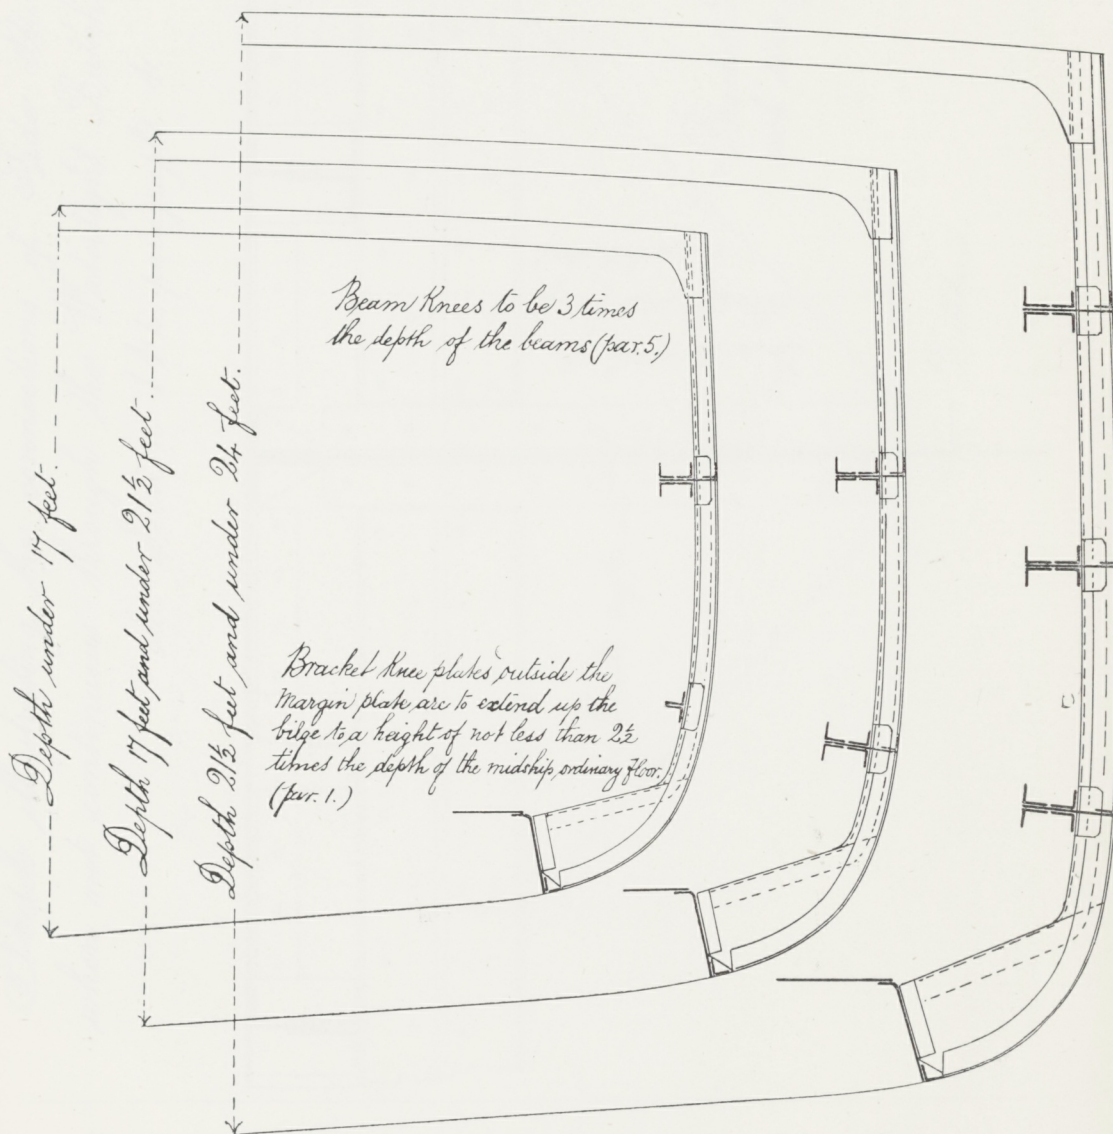 Depth under 17 feet.
Depth 17 feet and under 21½ feet.
Depth 21½ feet and under 24 feet.
Beam Knees to be 3 times
the depth of the beams (par. 5.)
Bracket Knee plates outside the
Margin plate are to extend up the
bilge to a height of not less than 2½
times the depth of the midship ordinary floor.
(par. 1.)